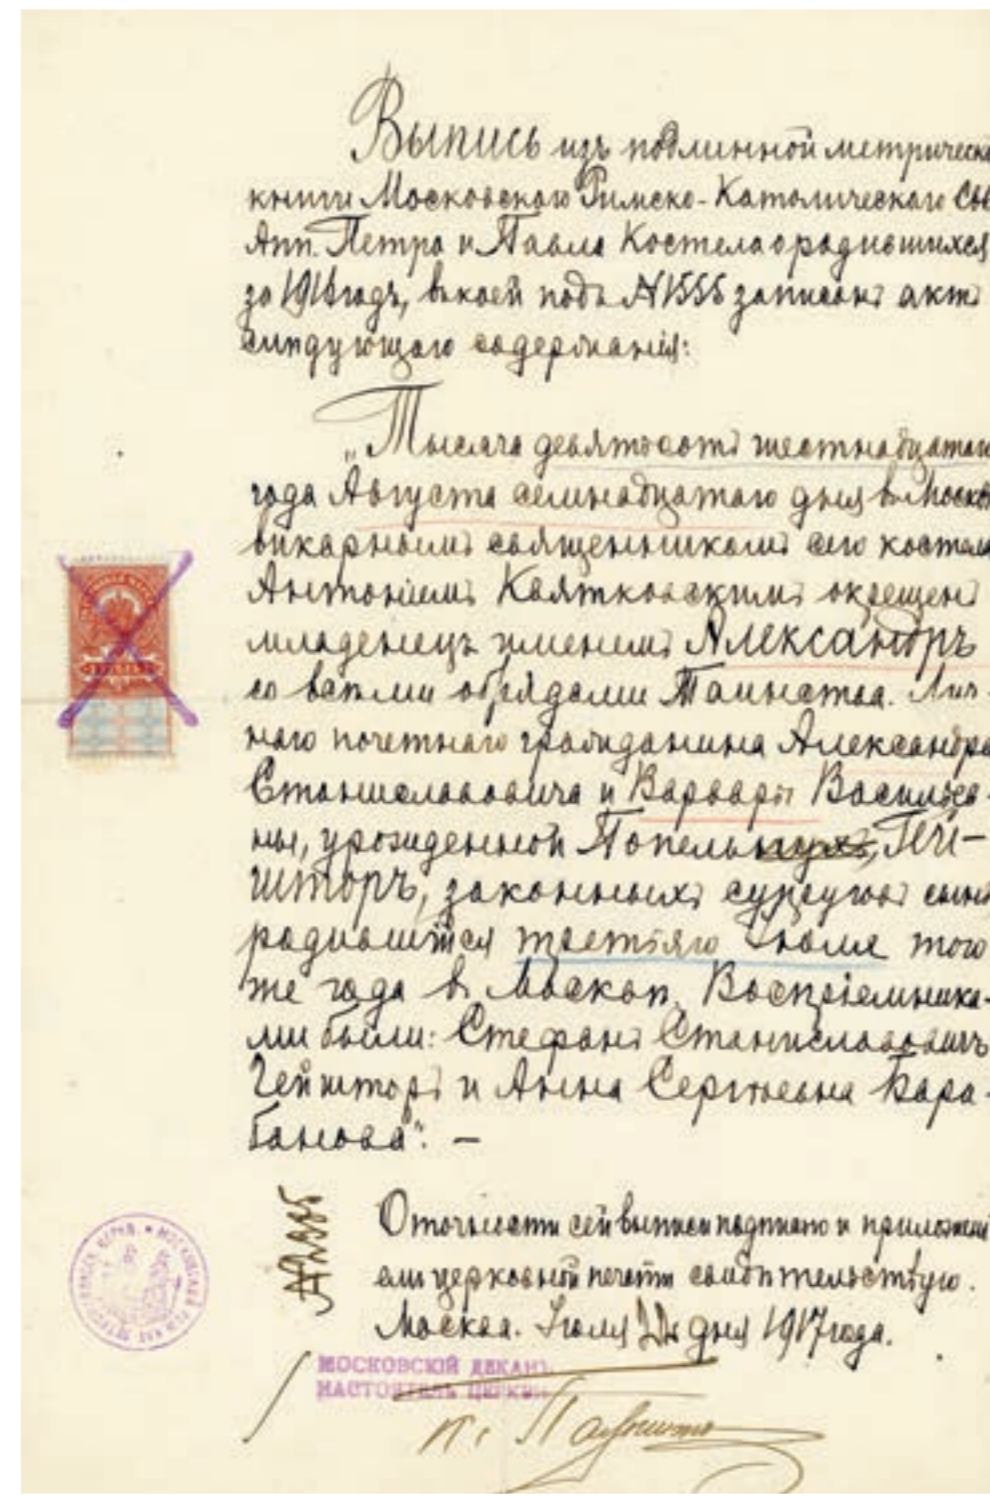 Выпись изъ подлинной метрическо
книги Московскаго Римско-Католическаго Св
Апп. Петра и Павла Костела о родившихся
за 1916 годъ, въ коей подъ № 1555 записанъ актъ
слѣдующаго содержанія:
„Тысяча девятьсотъ шестнадцатаго
года Августа семнадцатаго дня въ Москв
викарнымъ священникомъ сего костела
Антоніемъ Квятковскимъ окрещенъ
младенецъ именемъ Александръ
со всѣми обрядами Таинства. Лич-
наго почетнаго гражданина Александра
Станиславовича и Варвары Василье-
ны, урожденной Попель Гей-
шторъ, законныхъ супруговъ сынъ
родившійся третьяго Іюля того
же года въ Москвѣ. Воспріемника-
ми были: Стефанъ Станиславовичъ
Гейшторъ и Анна Сергѣевна Бара-
банова“. —
О точности сей выписи подписью и приложені
емъ церковной печати свидѣтельствую.
Москва. Іюля 22 дня 1917 года.
МОСКОВСКІЙ ДЕКАНЪ
НАСТОЯТЕЛЬ ЦЕРКВИ